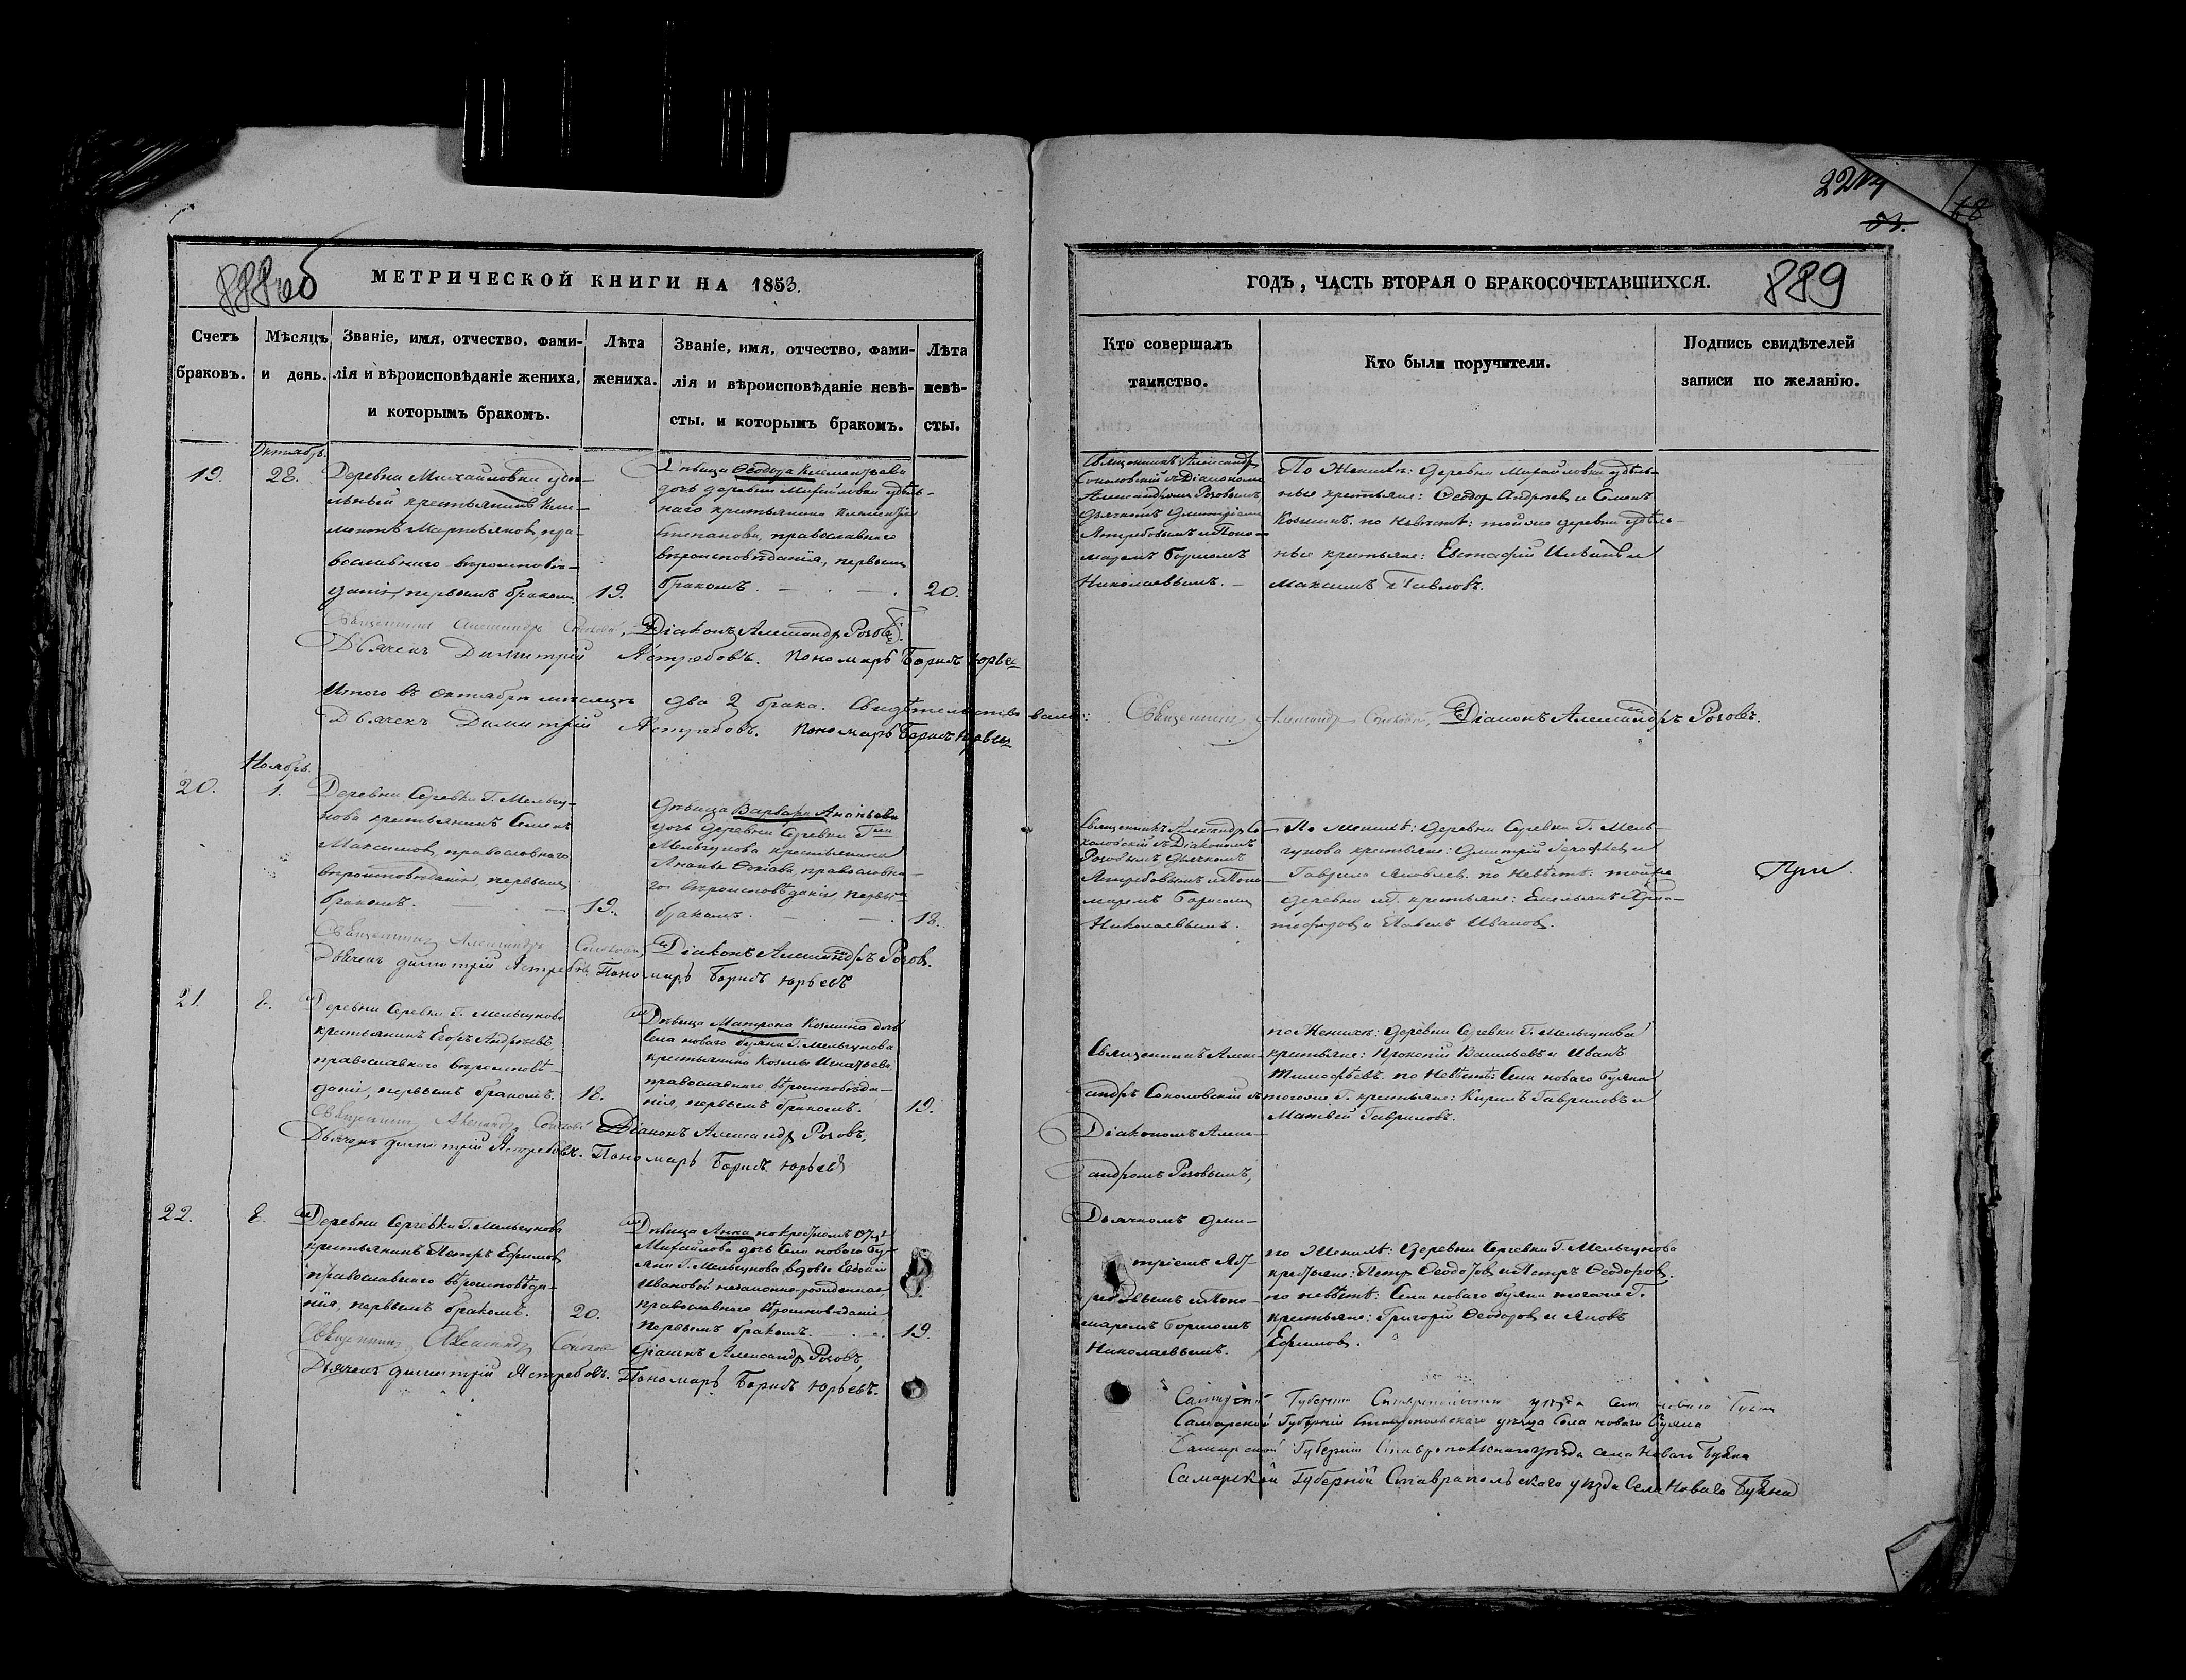 888 об
МЕТРИЧЕСКОЙ КНИГИ НА 1853.
Счетъ браковъ.
Мѣсяцъ и день.
Званіе, имя, отчество, фами-
лія и вѣроисповѣданіе жениха,
и которымъ бракомъ.
Лѣта
жениха.
Званіе, имя, отчество, фами-
лія и вѣроисповѣданіе невѣ-
сты. и которымъ бракомъ.
Лѣта
невѣ-
сты.
Октябрь.
19.
28.
Деревни Михайловки удѣ-
льный крестьянинъ Кли-
ментъ Мартьяновъ, пра-
вославнаго вѣроисповѣ-
данія, первымъ бракомъ.
19.
Дѣвица Ѳеодора Клементьева
дочь деревни Михайловки удѣль-
наго крестьянина Климентія
Степанова, православнаго
вѣроисповѣданія, первымъ
бракомъ.
20.
Священникъ Александръ Соколовскій, Діаконъ Александръ Розовъ.
Дьячекъ Димитрій Ястребовъ. Пономарь Борисъ Юрьевъ
Итого въ октябрѣ мѣсяцѣ два 2 брака. Свидѣтельствовали:
Дьячекъ Димитрій Ястребовъ. Пономарь Борисъ Юрьевъ
Ноябрь.
20.
1.
Деревни Сергевки Г. Мельгу-
нова крестьянинъ Семенъ
Максимовъ, православнаго
вѣроисповѣданія, первымъ
бракомъ.
19.
Дѣвица Варвара Ананьева
дочь деревни Сергевки Г.
Мельгунова крестьянина
Ананьи, православна-
го вѣроисповѣданія первымъ
бракомъ.
18.
Священникъ Александръ Соколовскій, Діаконъ Александръ Розовъ.
Дьячекъ Димитрій Ястребовъ Пономарь Борисъ Юрьевъ
21
8.
Деревни Сергевки Г. Мельгунова
крестьянинъ Егоръ Андреевъ
православнаго вѣроисповѣ-
данія, первымъ бракомъ.
18.
Дѣвица Матрона Козмина дочь
Села новаго буяна Г. Мельгунова
крестьянина Козмы Игнатьева
православнаго вѣроисповѣда-
нія, первымъ бракомъ.
19.
Священникъ Александръ Соколовскій Діаконъ Александръ Розовъ,
Дьячекъ Димитрій Ястребовъ. Пономарь Борисъ Юрьевъ
22.
8.
Деревни Сергевки Г. Мельгунова
крестьянинъ Петръ Ефимовъ
православнаго вѣроисповѣда-
нія, первымъ бракомъ.
20.
Дѣвица Анна по крестномъ отцѣ
Михайлова дочь Села новаго Бу-
яна Г. Мельгунова, вдовы Евдокіи
Ивановой незаконно-рожденная
православнаго вѣроисповѣданія
первымъ бракомъ.
19.
Священникъ Александръ Соколовскій Діаконъ Александръ Розовъ,
Дьячекъ Димитрій Ястребовъ. Пономарь Борисъ Юрьевъ.
68
ГОДЪ, ЧАСТЬ ВТОРАЯ О БРАКОСОЧЕТАВШИХСЯ.
889
Кто совершалъ
таинство.
Кто были поручители.
Подпись свидѣтелей
записи по желанію.
Священникъ Александръ
Соколовскій съ Діакономъ
Александромъ Розовымъ,
дьячкомъ Димитріемъ
Ястребовымъ и Поно-
маремъ Борисомъ
Николаевымъ.
По Женихѣ: деревни Михайловки удѣль-
ные крестьяне: Ѳеодоръ Андреевъ и Семенъ
Козминъ. по Невѣстѣ: тойже деревни удѣль-
ные крестьяне: Евстафій Ивановъ и
Максимъ Павловъ.
Священникъ Александръ Соколовскій, Діаконъ Александръ Розовъ.
Священникъ Александръ Со-
коловскій съ Діакономъ
Розовымъ Дьячкомъ
Ястребовымъ и Поно-
маремъ Борисомъ
Николаевымъ.
По женихѣ: деревни Сергевки Г. Мель-
гунова крестьяне: Дмитрій и
Гаврило Яковлевъ. по невѣстѣ: тойже
деревни и Г. крестьяне: Емельянъ Хрис-
тофоровъ и Павелъ Ивановъ.
Священникъ Алек-
сандръ Соколовскій съ
Діакономъ Алек-
сандромъ Розовымъ,
Дьячкомъ Дми-
тріемъ Яст-
ребовымъ и Поно-
маремъ Борисомъ
Николаевымъ.
по Женихѣ: деревни Сергевки Г. Мельгунова
крестьяне: Прокопій Васильевъ и Иванъ
Тимофѣевъ. по Невѣстѣ: Села новаго Буяна
тогоже Г. крестьяне: Кирилъ Гавриловъ и
Матвѣй Гавриловъ.
по Женихѣ: деревни Сергевки Г. Мельгунова
крестьяне: Петръ Ѳеодоровъ и Петръ Ѳеодоровъ.
по невѣстѣ: Села новаго буяна тогоже Г.
крестьяне: Григорій Ѳеодоровъ и Яковъ
Ефимовъ.
Самарской Губерніи Ставропольскаго уѣзда села новаго Буяна
Самарской Губерніи Ставропольскаго уѣзда Села новаго Буяна
Самарской Губерніи Ставропольскаго уѣзда села Новаго Буяна
Самарской Губерній Ставрапольскаго уѣзда Села Новаго Буяна